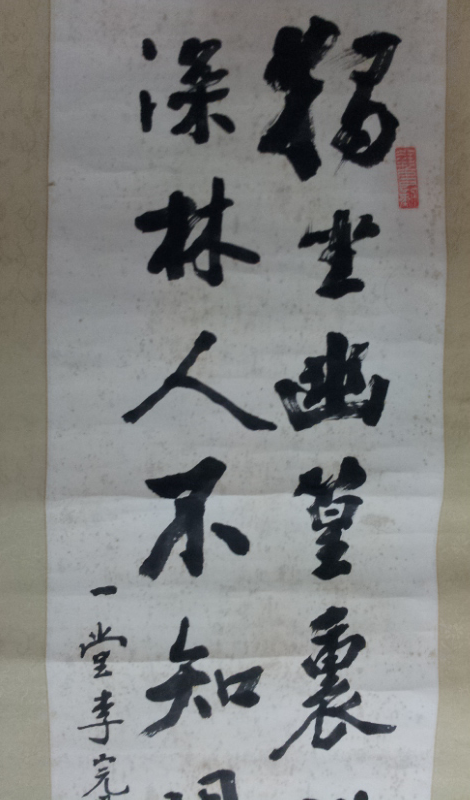 獨坐幽篁裏
深林人不知
一堂李完